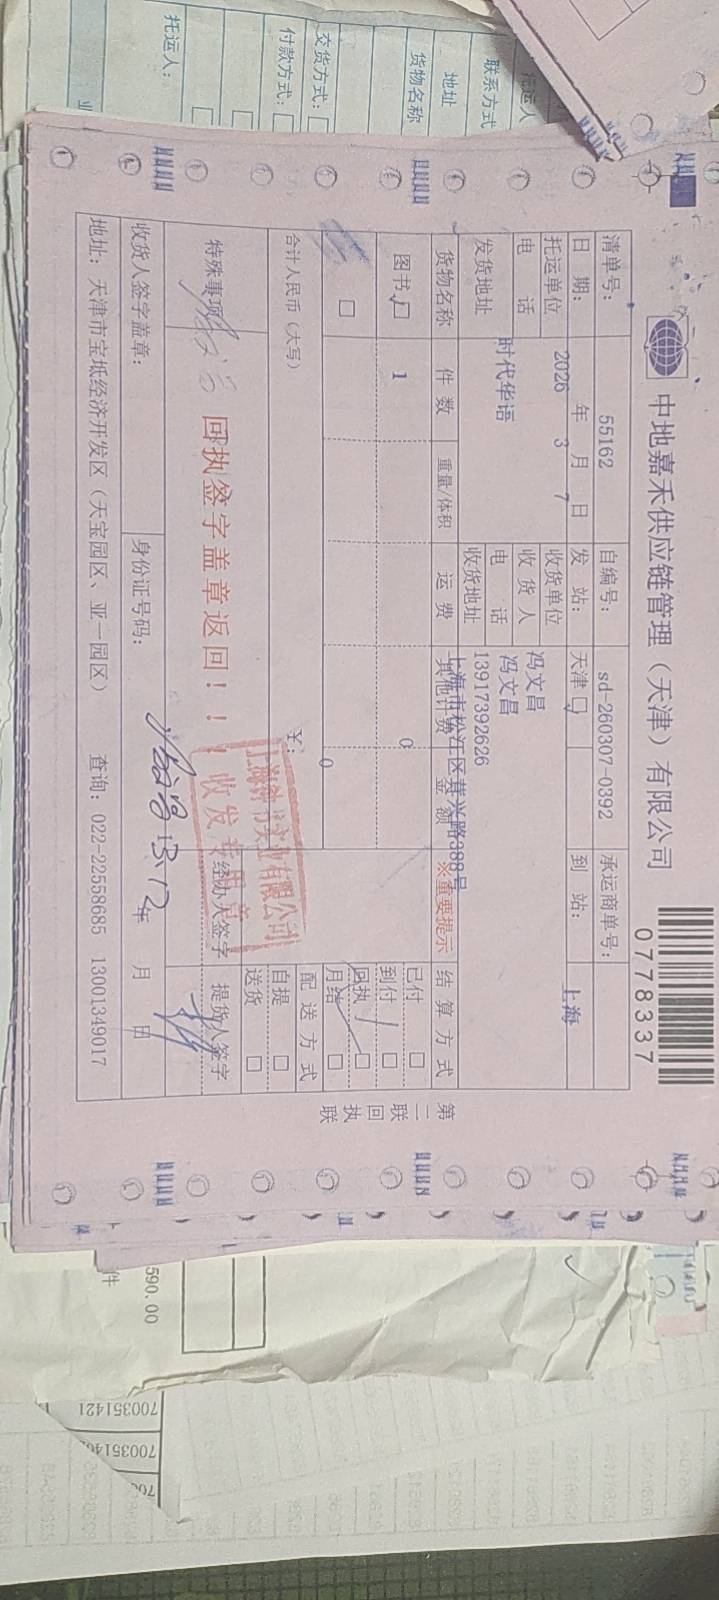 中地嘉禾供应链管理（天津）有限公司
0778337
清单号： 55162 自编号： sd-260307-0392 承运商单号：
日 期： 2026 年 3 月 7 日 发 站： 天津 到 站： 上海
托运单位 收货单位 冯文昌
电 话 收 货 人 冯文昌
时代华语 电 话 13917392626
发货地址 收货地址 上海市松江区茸兴路388号
货物名称 件 数 重量/体积 运 费 其他计费 金 额 ※重要提示 结 算 方 式
图书 1 0 已付
到付
回执
月结
合计人民币（大写） ￥： 0 配 送 方 式
自提
送货
特殊事项 回执签字盖章返回！！！ 经办人签字 提货人签字
收发专用章
收货人签字盖章： 身份证号码： 年 月 日
地址：天津市宝坻经济开发区（天宝园区、亚一园区） 查询：022-22558685 13001349017
第二联 回执联
托运人：
付款方式：
交货方式：
货物名称
地址
联系方式
托运人
业
590.00
件
700351421